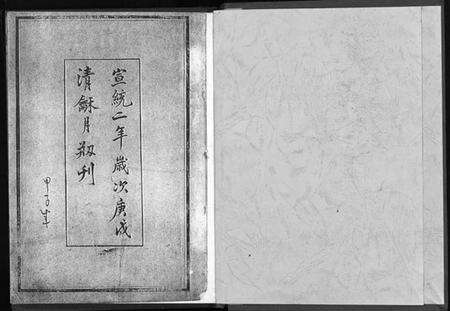 宣統二年歲次庚戌
清龢月刱刊
甲子年